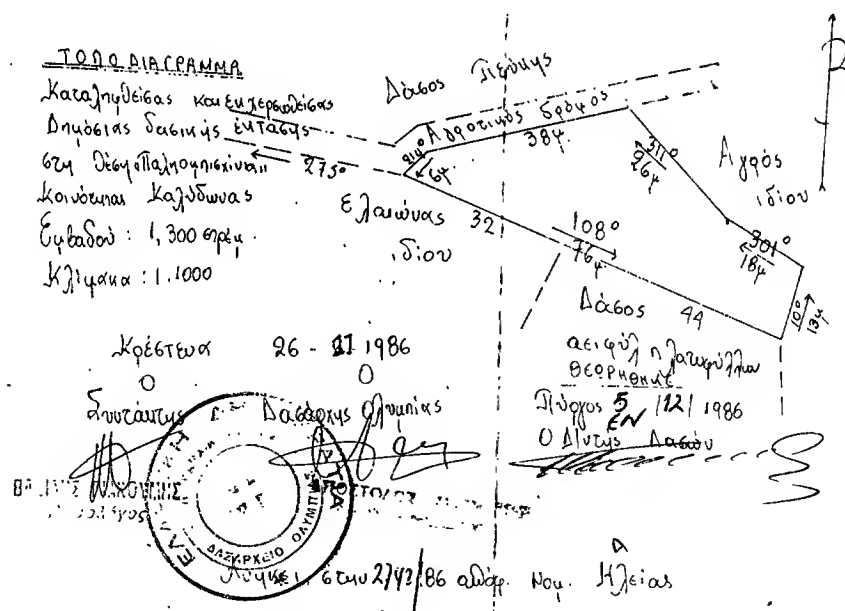 ΤΟΠΟΔΙΑΓΡΑΜΜΑ
Καταληφθείσας και εκχερσωθείσας
Δημόσιας δασικής έκτασης
στη θέση
Κοινότητας Καλύδωνας
Εμβαδού : 1,300 στρέμ.
Κλίμακα : 1.1000
Δάσος Πεύκης
Αγροτικός δρόμος
38μ
214°
6μ
275°
311°
26μ
Αγρός
ιδίου
Ελαιώνας
ιδίου
32
108°
76μ
301°
18μ
10°
13μ
44
Δάσος
αειφύλ πλατυφύλλων
Κρέστενα 26 - 11 1986
Ο Ο
Συντάκτης Δασάρχης Ολυμπίας
ΘΕΩΡΗΘΗΚΕ
Πύργος 5 /12/ 1986
ΕΝ
Ο Δ/ντης Δασών
ΔΑΣΑΡΧΕΙΟ ΟΛΥΜΠΙΑΣ
στην 86 απόφ. Νομ. Ηλείας